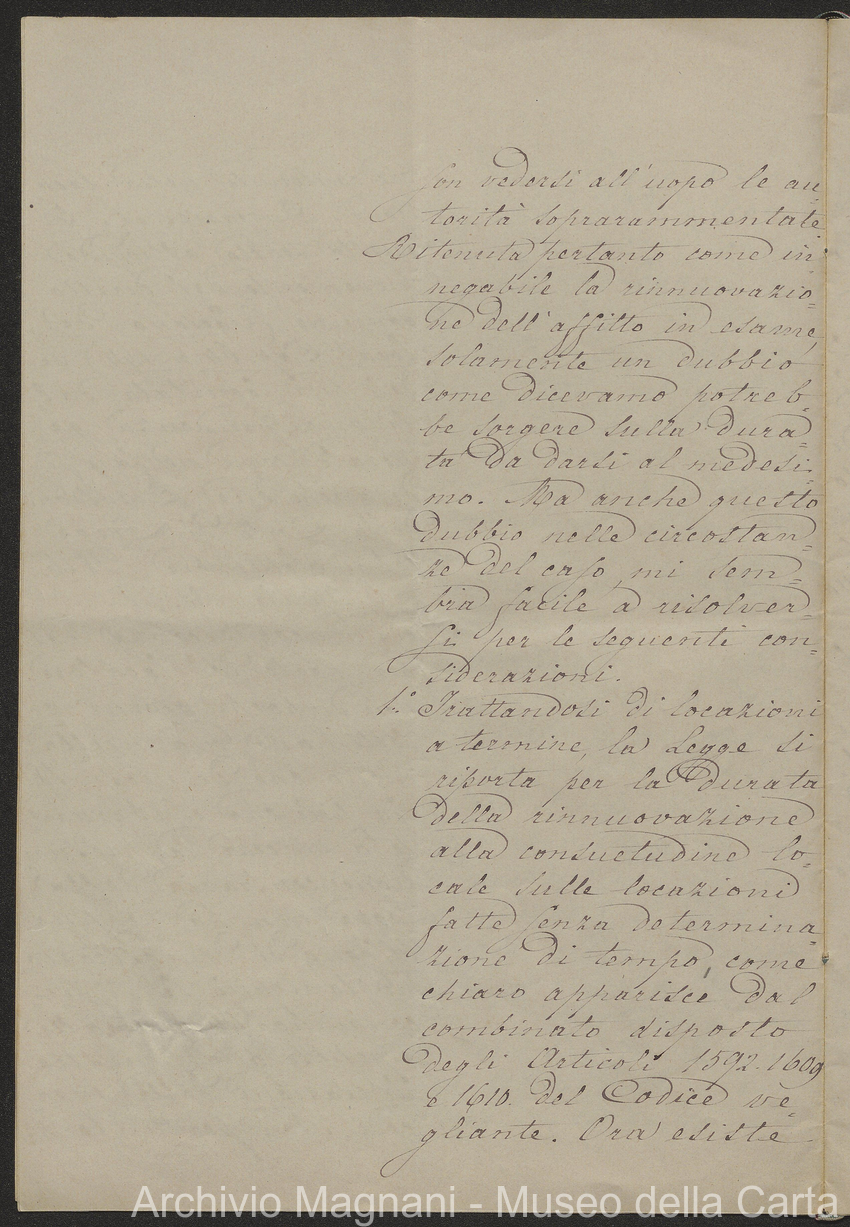 son vedersi all'uopo le au=
torità soprarammentate
Ritenuta pertanto come in=
negabile la rinnuovazio=
ne dell'affitto in esame,
solamente un dubbio
come dicevamo potreb=
be sorgere sulla dura=
ta da darsi al medesi=
mo. Ma anche questo
dubbio nelle circostan=
ze del caso, mi sem=
bra facile a risolver=
si per le seguenti con=
siderazioni.
1.° Trattandosi di locazioni
a termine, la Legge si
riporta per la durata
della rinnuovazione
alla consuetudine lo=
cale sulle locazioni
fatte senza determina=
zione di tempo, come
chiaro apparisce dal
combinato disposto
degli Articoli 1592. 1609
e 1610. del Codice ve=
gliante. Ora esiste
Archivio Magnani - Museo della Carta